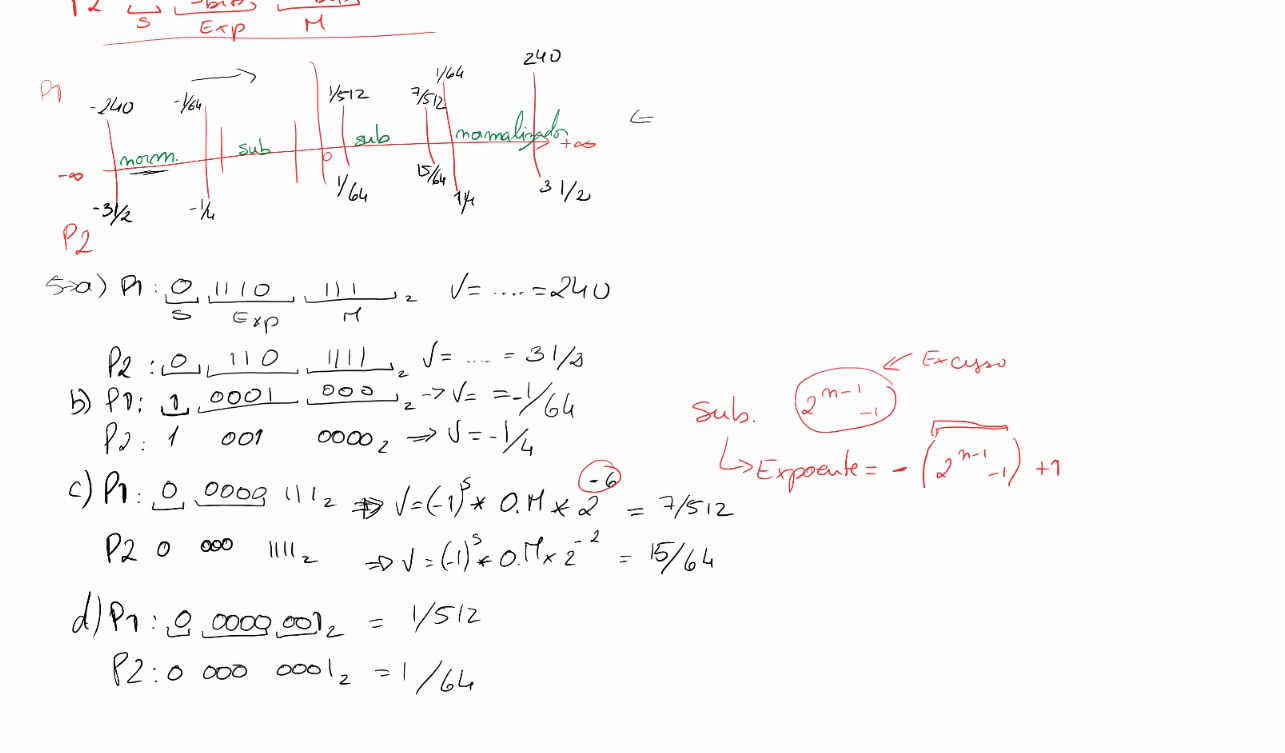 P2
S Exp M
P1
-240 -1/64 1/512 7/512 1/64 240
-∞ norm. sub 0 sub normalizador +∞
-31/2 -1/4 1/64 15/64 1/4 31/2
P2
5-a) P1: 0 1110 111 2 V= .... =240
S Exp M
P2: 0 110 1111 2 V= .... = 31/2
b) P1: 1 0001 000 2 -> V= =-1/64
P2: 1 001 0000 2 => V=-1/4
c) P1: 0 0000 111 2 => V=(-1)^S * 0.M * 2^-6 = 7/512
P2 0 000 1111 2 => V=(-1)^S * 0.M x 2^-2 = 15/64
d) P1: 0 0000 001 2 = 1/512
P2: 0 000 0001 2 = 1/64
Excesso
Sub. 2^n-1 -1
Expoente = -(2^n-1 -1) +1